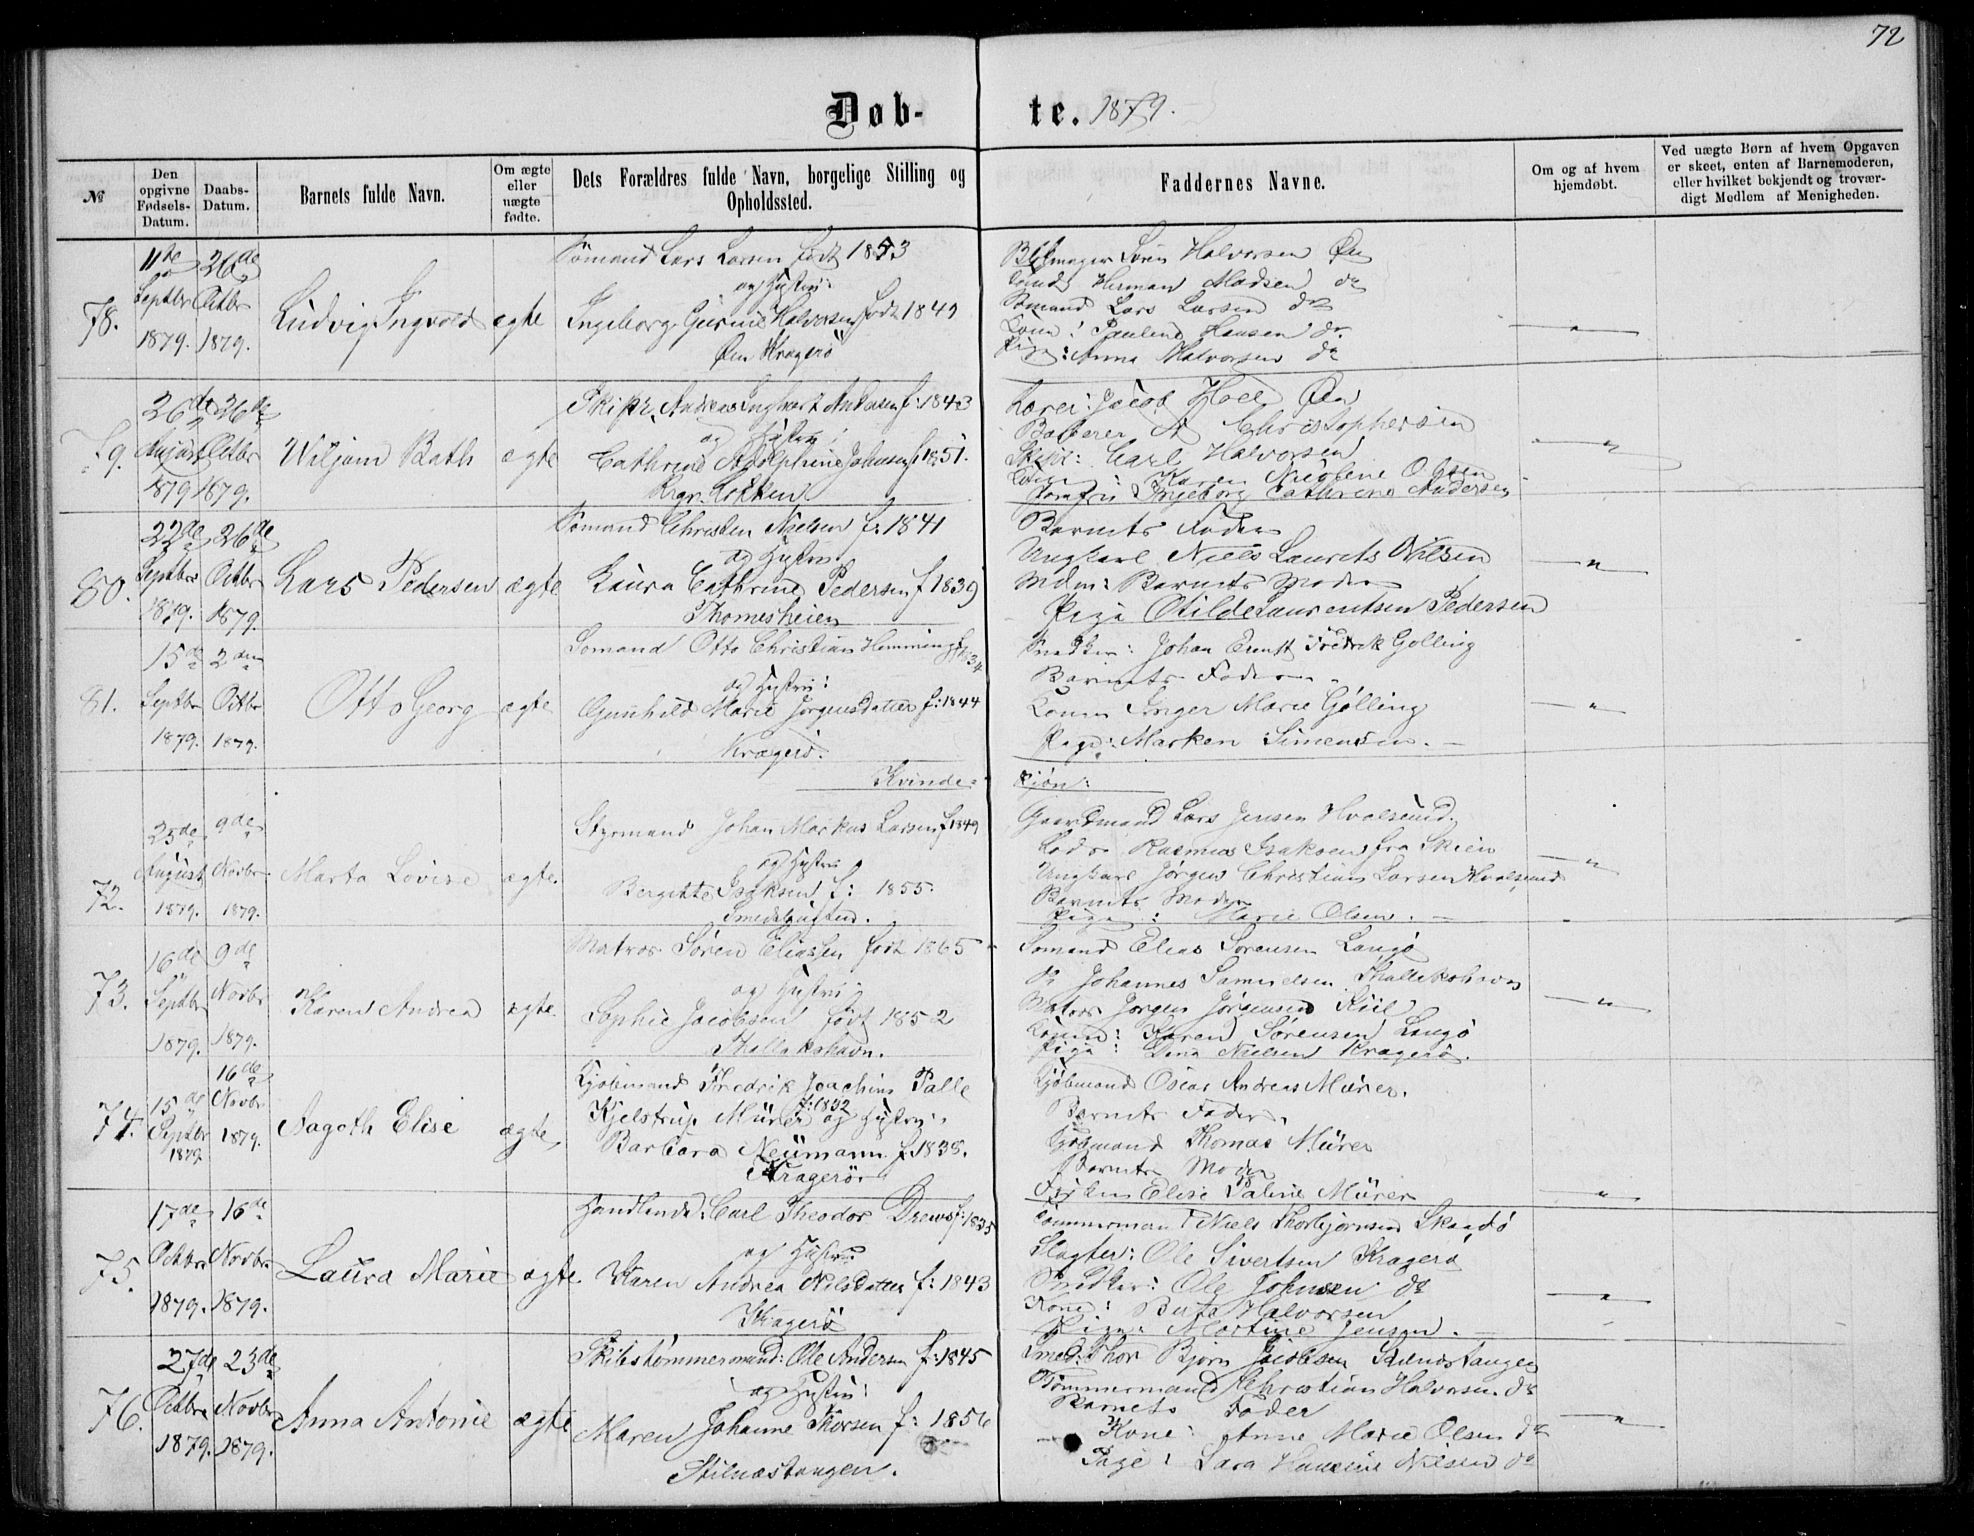 72
Døb-
te. 1879.
№
Den opgivne Fødsels-Datum.
Daabs-Datum.
Barnets fulde Navn.
Om ægte eller uægte fødte.
Dets Forældres fulde Navn, borgelige Stilling og Opholdssted.
Faddernes Navne.
Om og af hvem hjemdøbt.
Ved uægte Børn af hvem Opgaven er skeet, enten af Barnemoderen, eller hvilket bekjendt og troværdigt Medlem af Menigheden.
78.
11te Septbr 1879.
26de Octbr 1879.
Ludvig Ingvold
ægte
Sømand Lars Larsen født 1853
og Hustru:
Ingeborg Gurine Halvorsen født 1849
Øen Kragerø
Søren Halvorsen Øen
Herman Madsen do
Sømand Lars Larsen do
Kone: Pauline Hansen do
Pige: Anna Halvorsen do
79.
26de August 1879
26de Octbr 1879.
Wiljam Bath
ægte
Skipr. Andreas Andersen f: 1843
og Hustru:
Cathrine Adolphine Johnsen f: 1851.
Jacob Øen
Barberer A Christophersen
Skipr: Carl Halvorsen
Karen Nicoline Olsen
Jomfru Ingeborg Cathrine Andersen
80.
22de Septbr 1879.
26de Octbr 1879.
Lars Pedersen
ægte
Sømand Christen Nielsen f: 1841
og Hustru
Laura Cathrine Pedersen f 1839
Thomesheien
Barnets Fader
Ungkarl Niels Laurits Nilsen
Barnets Moder
Pige Otilde Laurentsen Pedersen
81.
15de Septbr 1879.
2den Octbr 1879.
Otto Georg
ægte
Somand Otto Christian Hemming
og Hustru:
Gunhild Marie Jørgensdatter f: 1844
Kragerø.
Snedker: Johan Ernst Fredrik Golling
Barnets Fader
Konen Inger Marie Gølling
Pige: Marken Simensen.
Kvinde-
kjøn:
72.
25de August 1879.
9de Novbr 1879.
Marta Lovise
ægte.
Styrmand Johan Markus Larsen f 1849
og Hustru
Bergitte Isaksen f: 1855.
Gaardmand Lars Jensen Hvalsund.
Lods Rasmus Isaksen fra Skien
Ungkarl Jørgen Christian Larsen Hvalsund
Barnets Moder
Pige: Marie Olsen.
73.
16de Septbr 1879.
9de Novbr 1879.
Karen Andrea
ægte
Matros Søren Eliasen født 1865
og Hustru
Sophie Jacobsen født 1852
Thallakshavn.
Somand Elias Sorensen Langø
Do Johannes Samuelsen Thallakshavn
Matros Jørgen Jørgensen Kiil
Konen: Karen Sørensen Langø
Pige: Dina Nielsen Kragerø.
74.
15de Septbr 1879
16de Novbr 1879.
Aagoth Elise
ægte
Kjøbmand Fredrik Joachim Palle
Kjelstrup Mürer f: 1832 og Hustru.
Barbara Neümann f 1838.
Kragerø
Kjøbmand Oscar Andreas Mürer.
Barnets Fader.
Kjøbmand Thomas Mürer
Barnets Moder
Frøken Elise Paline Mürer
75.
17de Octbr 1879.
16de Novbr 1879.
Laura Marie
ægte
Carl Theodor Drews f: 1835
og Hustru
Karen Andrea Nilsdatter f: 1843
Kragerø
Tømmermand Niels Thorbjørnsen Skaadø
Slagter: Ole Sivertsen Kragerø
Snedker: Ole Johnsen do
Kone: Berta Halvorsen
Pige: Martine Jensen.
76.
27de Octbr 1879.
23de Novbr 1879.
Anna Antonie
ægte
Skibstømmermand: Ole Andersen f: 1845
og Hustru:
Maren Johanne Thorsen f: 1856
Stilnæstangen.
Smed: Thor Bjørn Jacobsen Stilnæstangen
Tømmermand Christian Halvorsen do
Barnets Fader
Kone: Anne Marie Olsen do
Pige: Sara Nilsen do